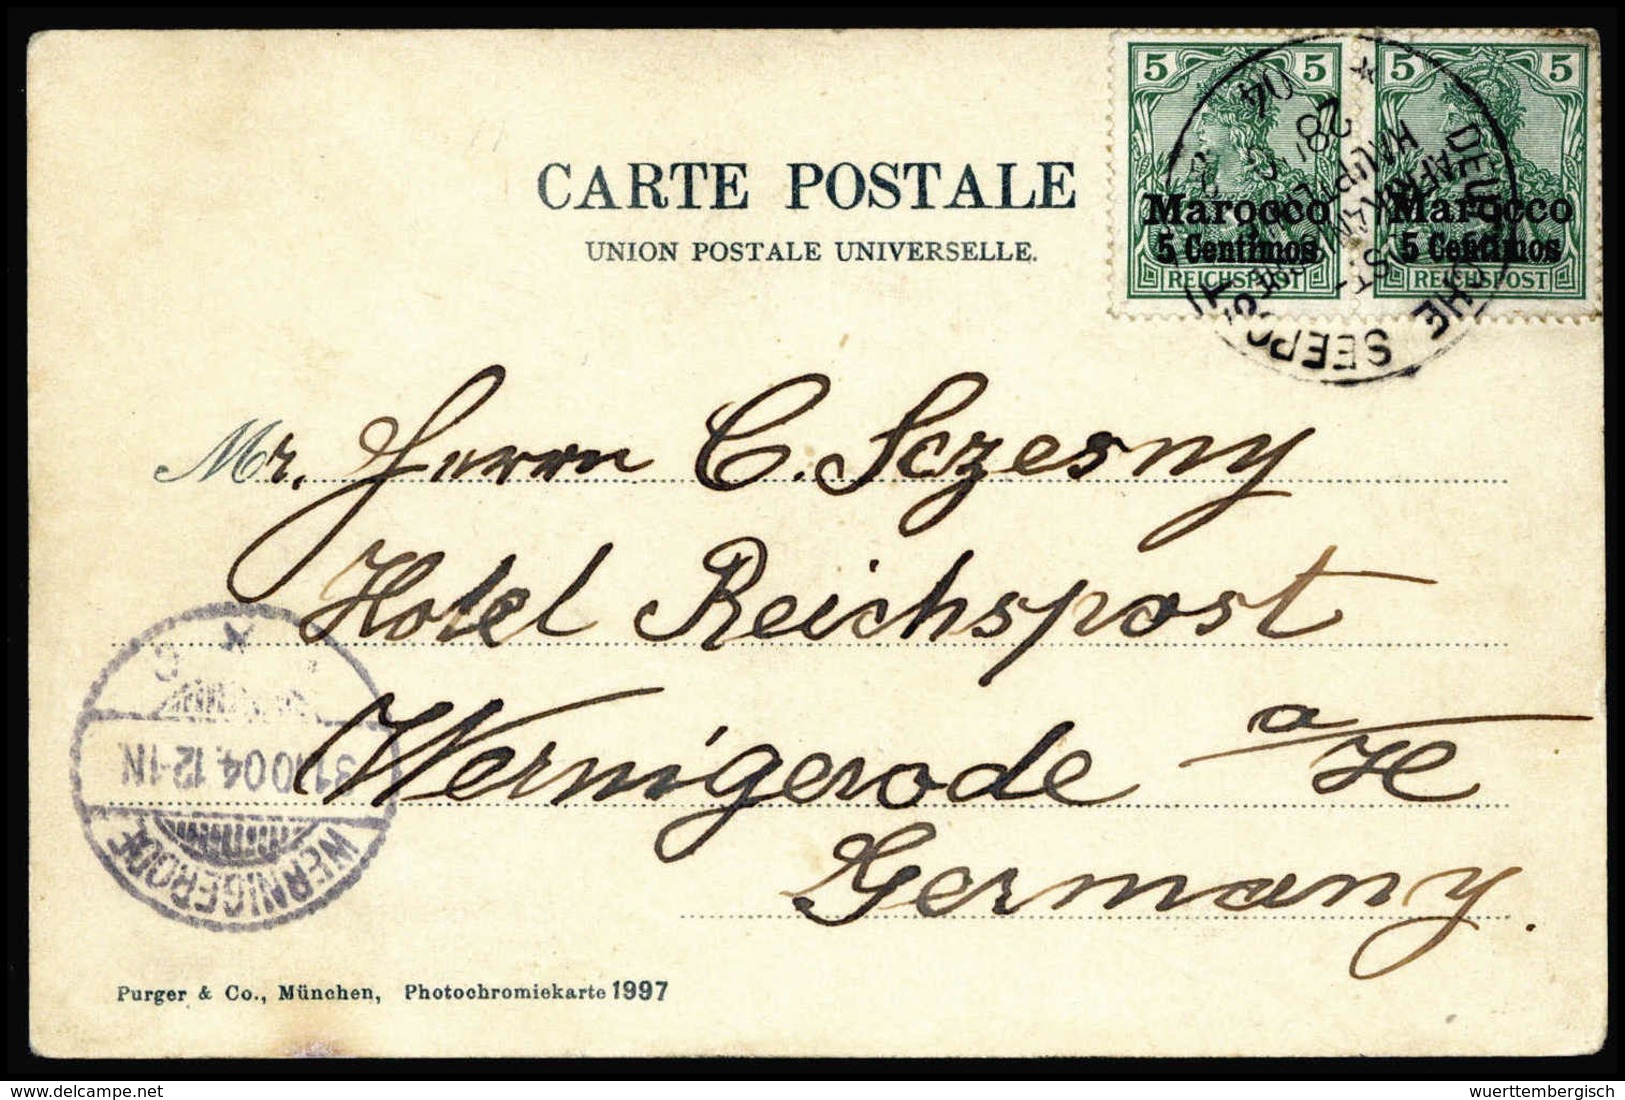 5 5 5 5
Marocco Marocco
5 Centimos 5 Centimos
REICHSPOST REICHSPOST
DEUTSCHE SEEPOST
HAUPTLINIE
28
04
CARTE POSTALE
UNION POSTALE UNIVERSELLE.
Mr. Herrn C. Sczesny
Hotel Reichspost
Wernigerode a/H
Germany.
31.10 04. 12-1N
WERNIGERODE
Purger & Co., München, Photochromiekarte 1997
delcampe.net
wuerttembergisch